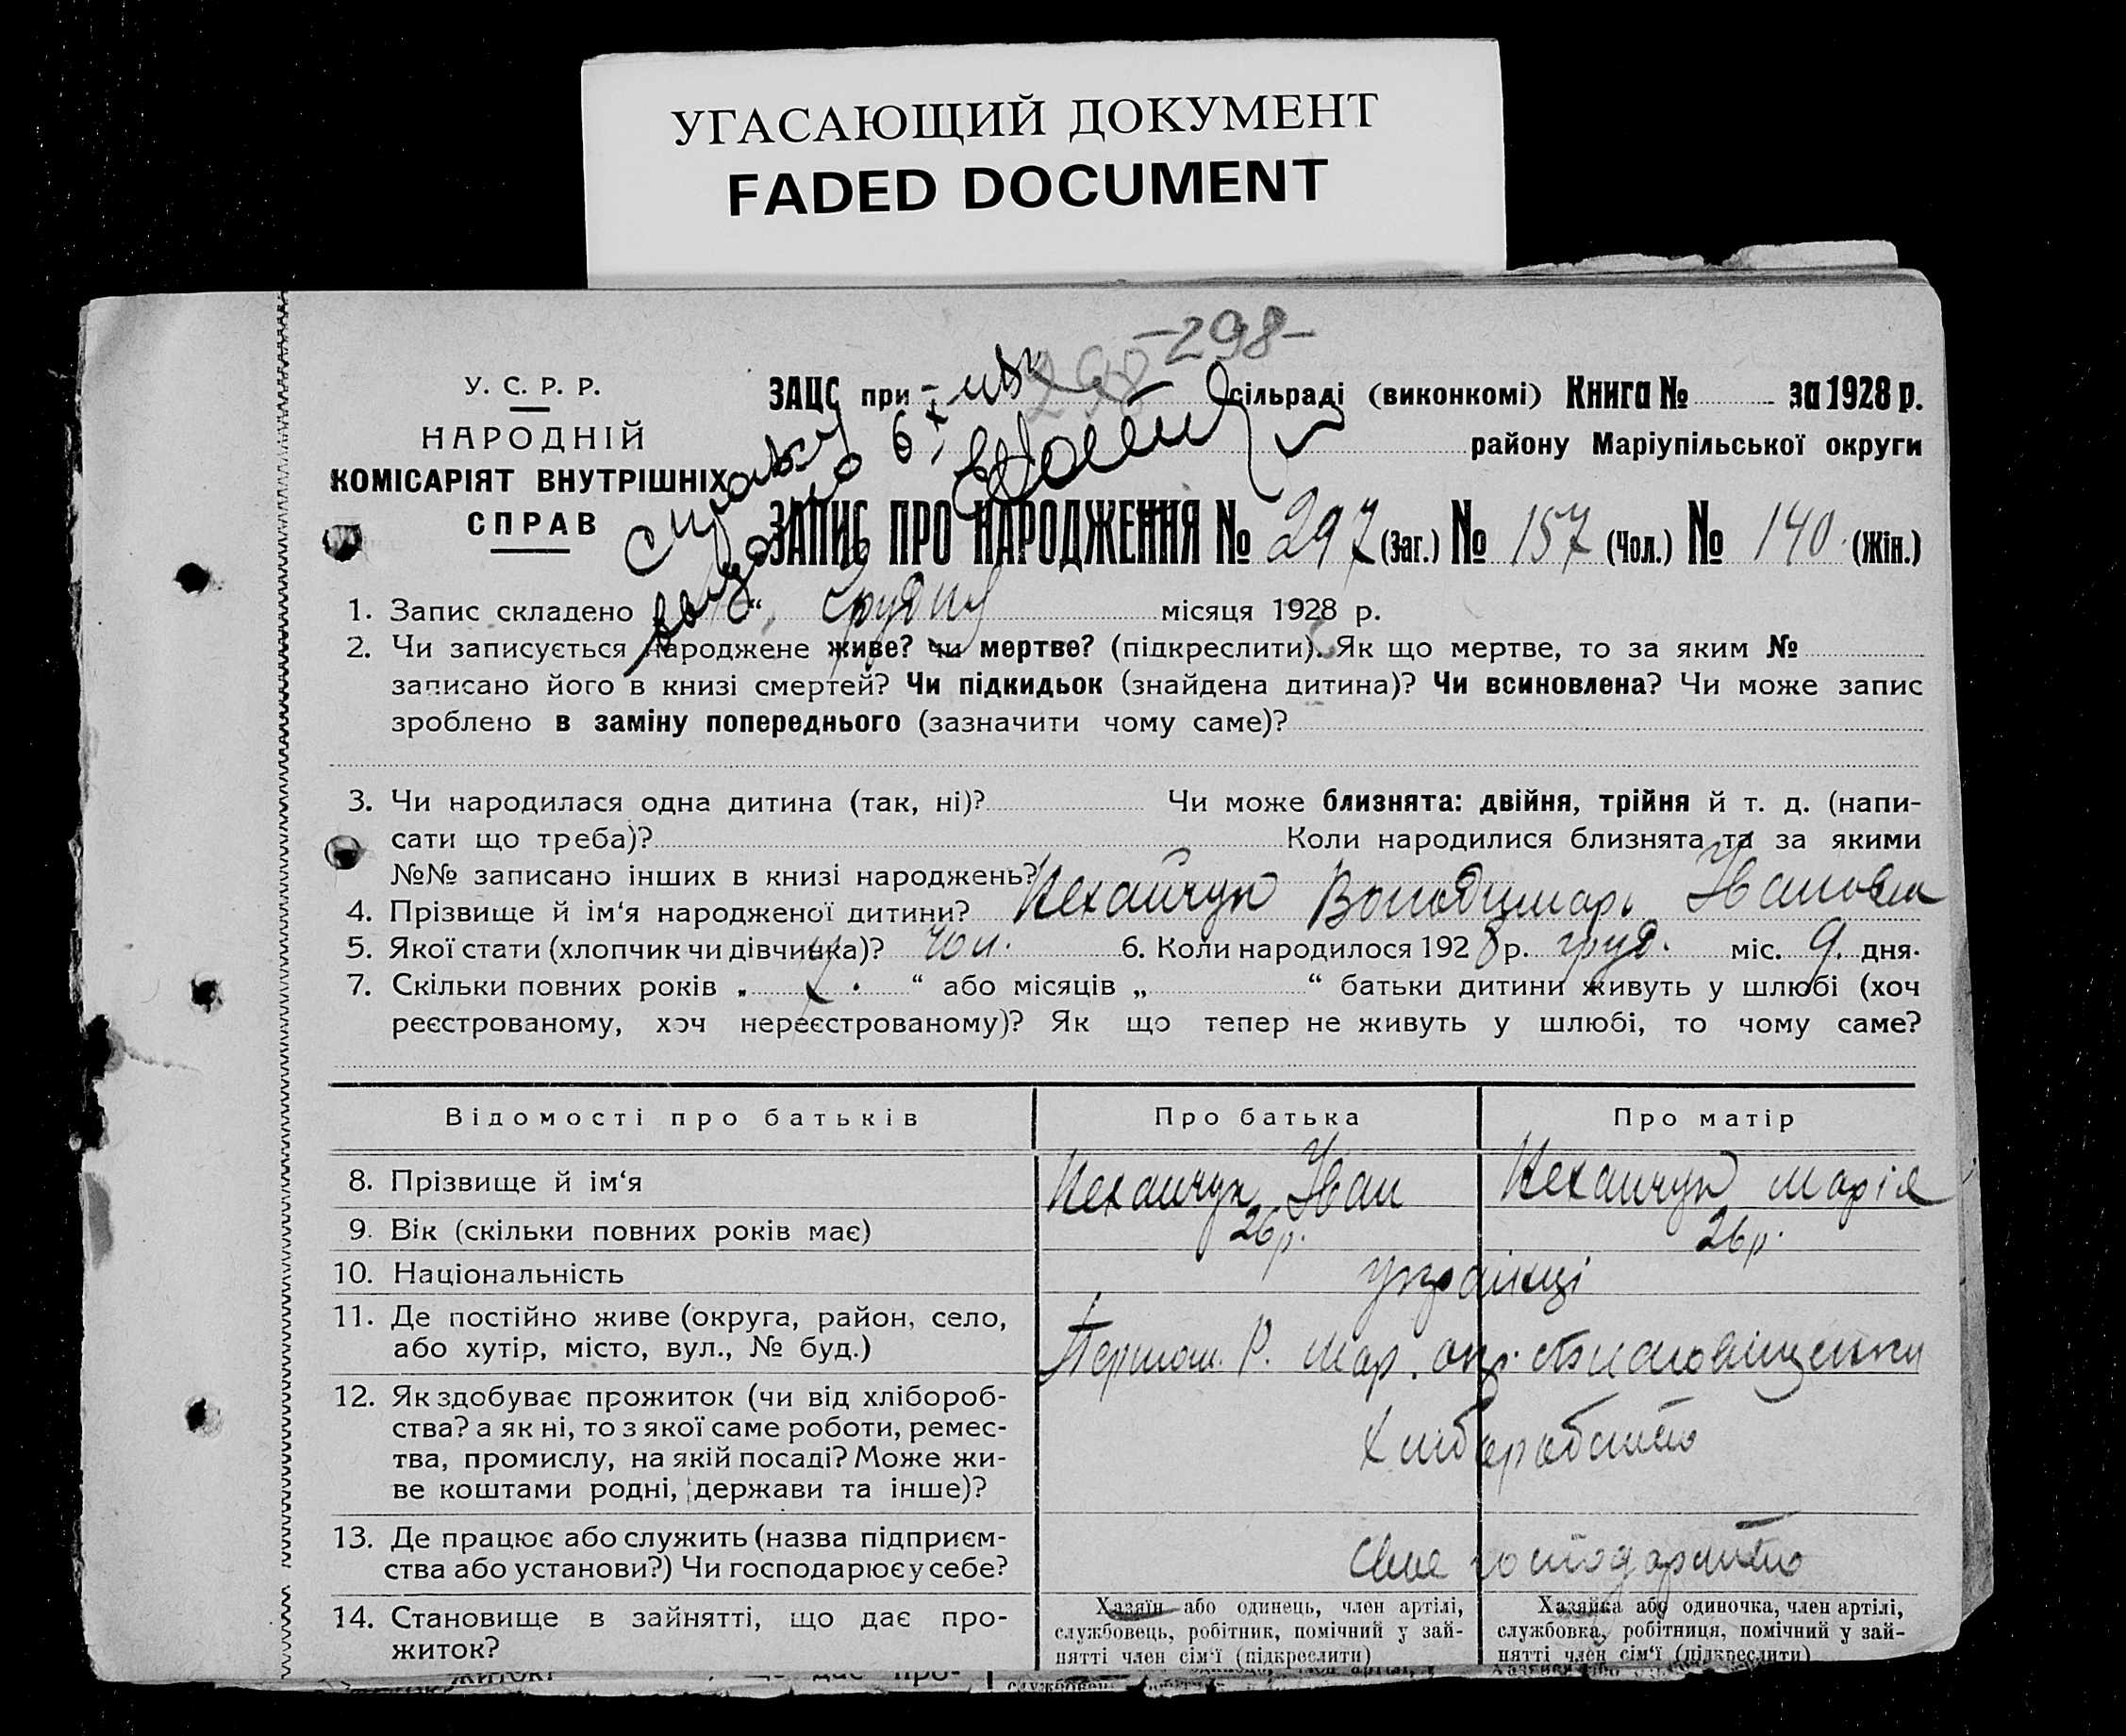 УГАСАЮЩИЙ ДОКУМЕНТ
FADED DOCUMENT
-298-
298
У. С. Р. Р.
НАРОДНІЙ
КОМІСАРІЯТ ВНУТРІШНІХ
СПРАВ
ЗАЦС при сільраді (виконкомі) Книга № за 1928 р.
району Маріупільської округи
ЗАПИС ПРО НАРОДЖЕННЯ № 297 (Заг.) № 157 (Чол.) № 140. (Жін.)
1. Запис складено “ Грудня місяця 1928 р.
2. Чи записується народжене живе? чи мертве? (підкреслити). Як що мертве, то за яким №
записано його в книзі смертей? Чи підкидьок (знайдена дитина)? Чи всиновлена? Чи може запис
зроблено в заміну попереднього (зазначити чому саме)?
3. Чи народилася одна дитина (так, ні)? Чи може близнята: двійня, трійня й т. д. (напи-
сати що треба)? Коли народилися близнята та за якими
№№ записано інших в книзі народжень?
4. Прізвище й ім‘я народженої дитини? Володимарь Іванович
5. Якої стати (хлопчик чи дівчинка)? чол. 6. Коли народилося 1928 р. груд. міс. 9. дня.
7. Скільки повних років „ “ або місяців „ “ батьки дитини живуть у шлюбі (хоч
реєстрованому, хоч нереєстрованому)? Як що тепер не живуть у шлюбі, то чому саме?
Відомості про батьків Про батька Про матір
8. Прізвище й ім‘я Іван Марія
9. Вік (скільки повних років має) 26 р. 26 р.
10. Національність українці
11. Де постійно живе (округа, район, село,
або хутір, місто, вул., № буд.) Першот. Р. Мар. окр.
12. Як здобуває прожиток (чи від хлібороб-
ства? а як ні, то з якої саме роботи, ремес-
тва, промислу, на якій посаді? Може жи-
ве коштами родні, держави та інше)?
Хліборобство
13. Де працює або служить (назва підприєм-
ства або установи?) Чи господарює у себе?
Своє господарство
14. Становище в зайнятті, що дає про-
житок?
Хазяїн або одинець, член артілі,
службовець, робітник, помічний у зай-
нятті член сім‘ї (підкреслити)
Хазяйка або одиночка, член артілі,
службовка, робітниця, помічний у зай-
нятті член сім‘ї (підкреслити)